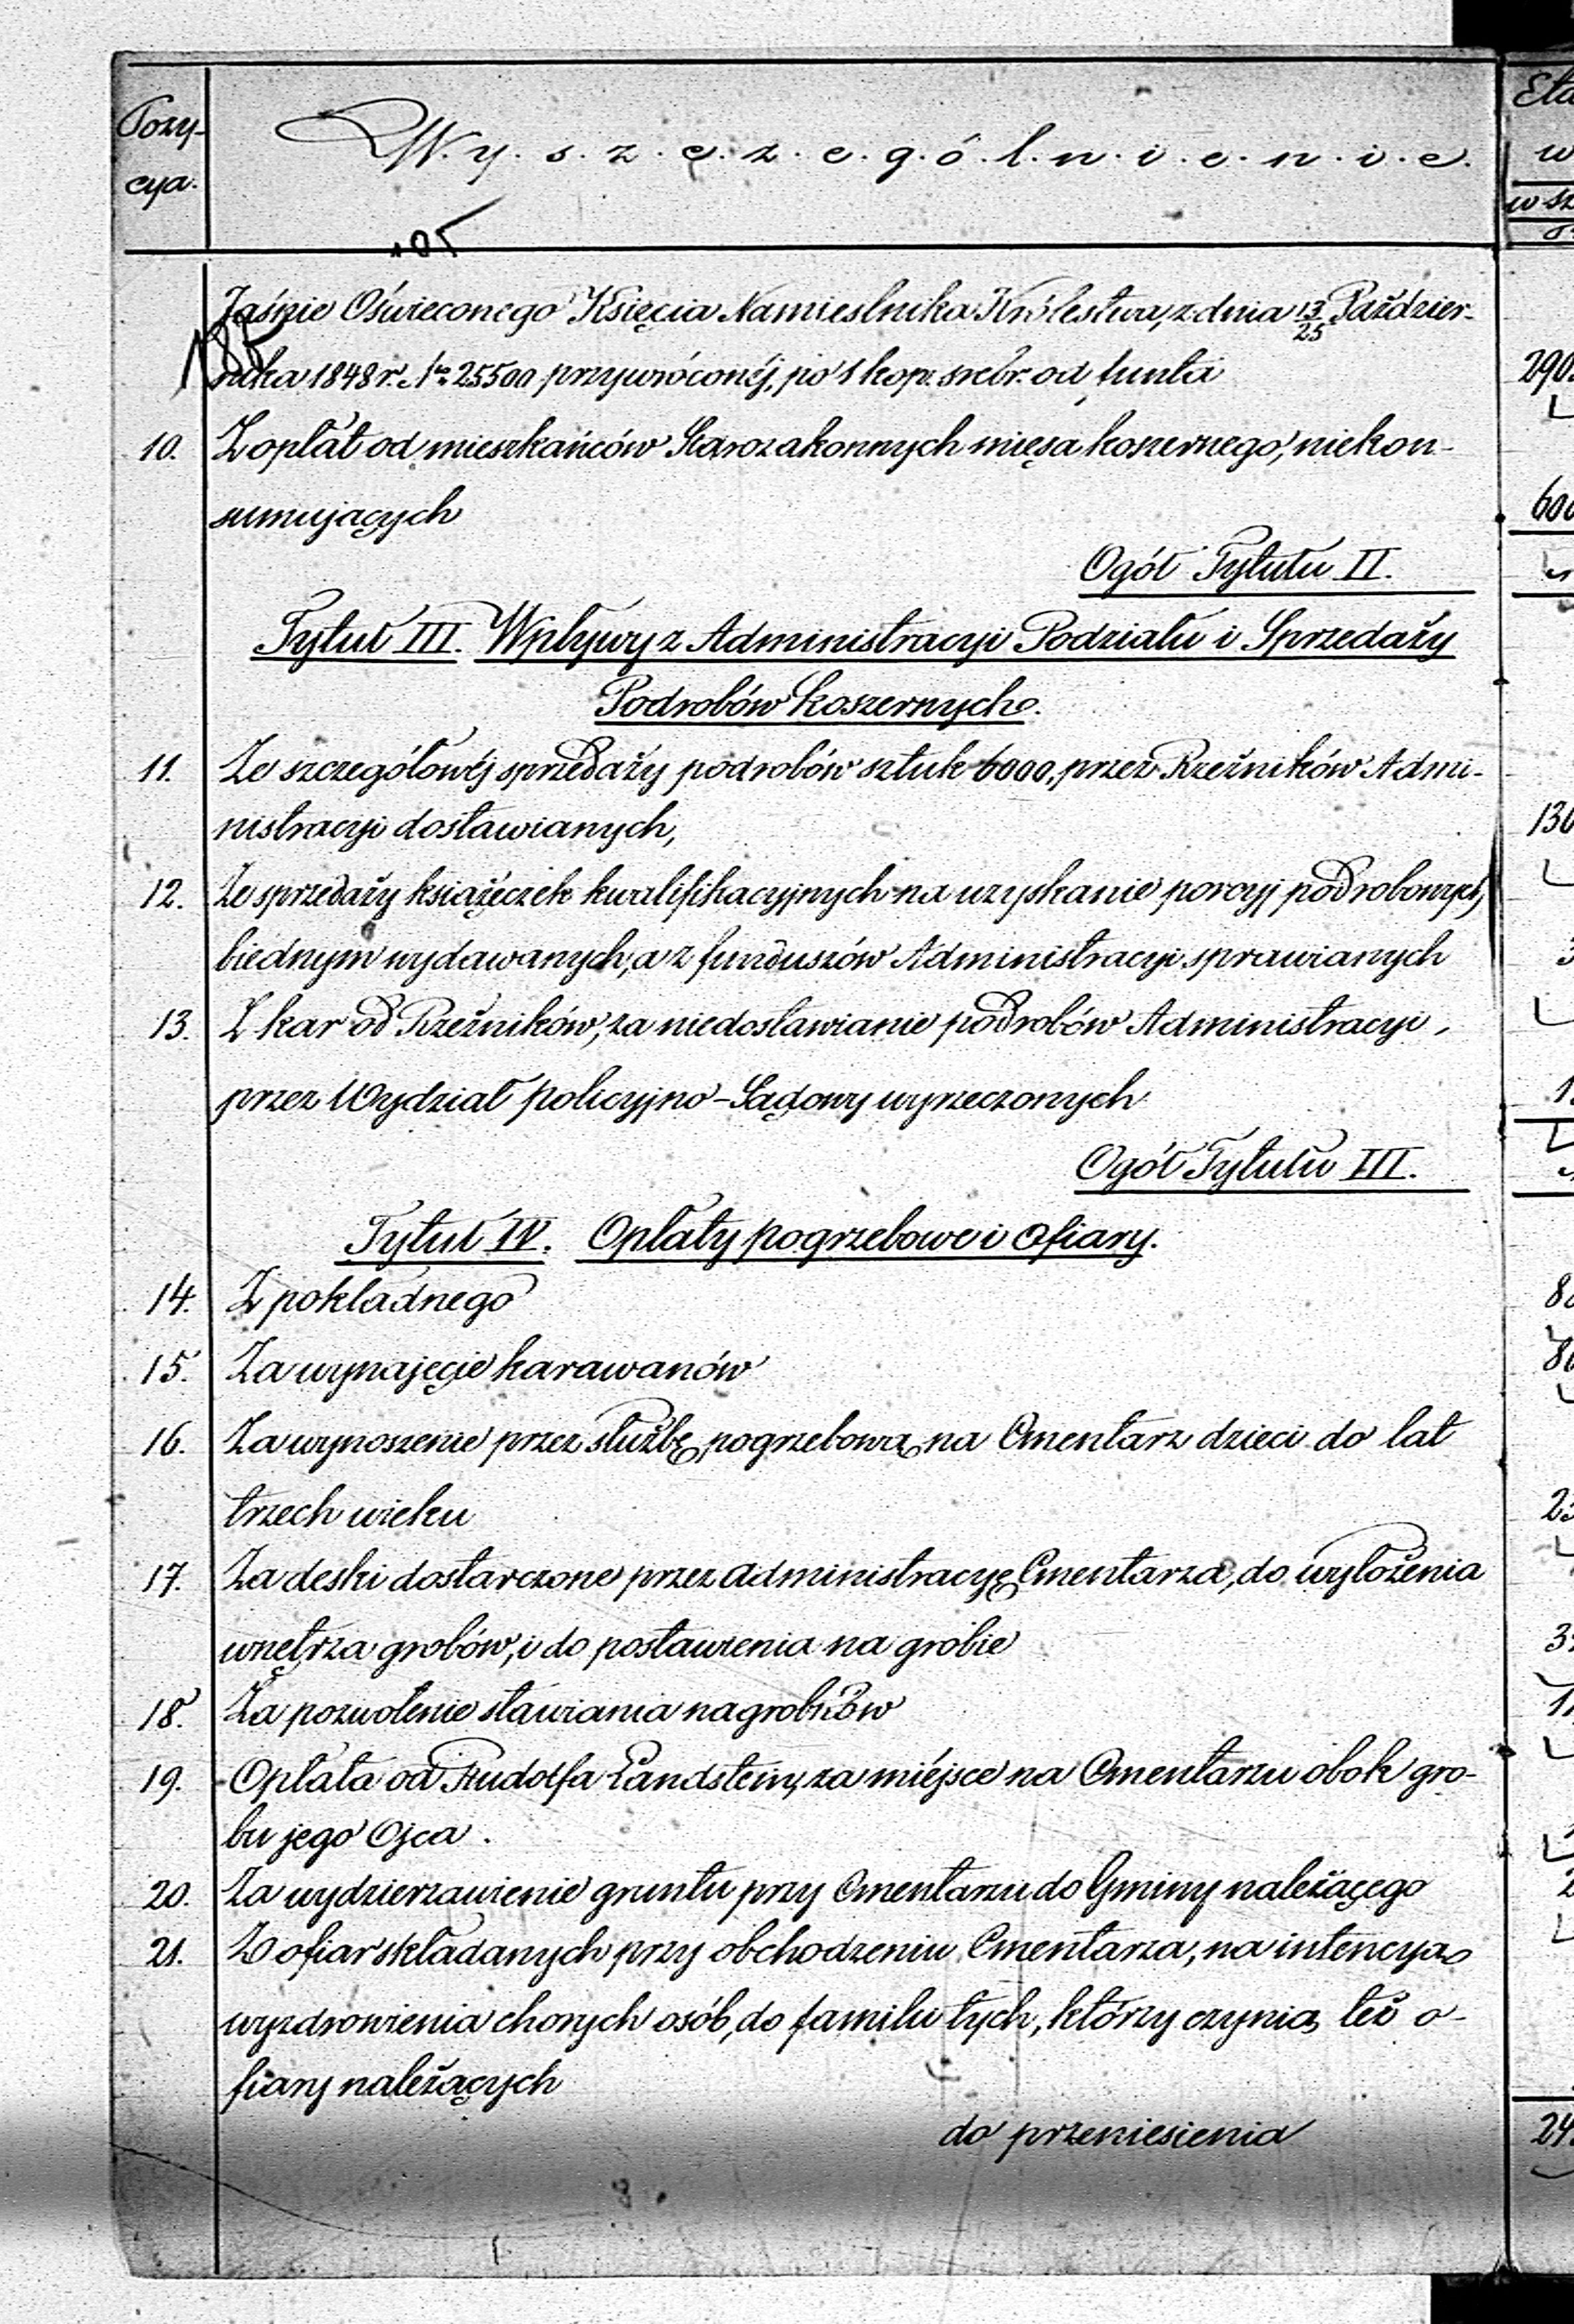 Pozy-
cya.
W.y.s.z.c.z.e.g.ó.l.n.i.e.n.i.e.
105
185
Jaśnie Oświeconego Księcia Namiestnika Królestwa, z dnia 13/25 Paździer-
nika 1848 r. No 25500 przywróconéj, po 1 kop. srebr. od funta
10. Z opłat od mieszkańców Starozakonnych mięsa koszernego, niekon-
sumujących
Ogół Tytułu II.
Tytuł III. Wpływy z Administracyi Podziału i Sprzedaży
Podrobów koszernych.
11. Ze szczegółowéj sprzedaży podrobów sztuk 6000, przez Rzeźników Admi-
nistracyi dostawianych,
12. Ze sprzedaży książeczek kwalifikacyjnych na uzyskanie porcyj podrobowych,
biednym wydawanych, a z funduszów Administracyi sprawianych
13. Z kar od Rzeźników, za niedostawianie podrobów Administracyi,
przez Wydział policyjno-Sądowy wyrzeczonych
Ogół Tytułu III.
Tytuł IV. Opłaty pogrzebowe i ofiary.
14. Z pokładnego
15. Za wynajęcie karawanów
16. Za wynoszenie przez służbę pogrzebową na Cmentarz dzieci do lat
trzech wieku
17. Za deski dostarczone przez administracyę Cmentarza, do wyłożenia
wnętrza grobów, i do postawienia na grobie
18. Za pozwolenie stawiania nagrobków
19. Opłata od Rudolfa Landstein, za miéjsce na Cmentarzu obok gro-
bu jego Ojca.
20. Za wydzierzawienie gruntu przy Cmentarzu do Gminy należącego
21. Z ofiar składanych przy obchodzeniu Cmentarza, na intencyą
wyzdrowienia chorych osób, do familii tych, którzy czynią też o-
fiary należących
do przeniesienia